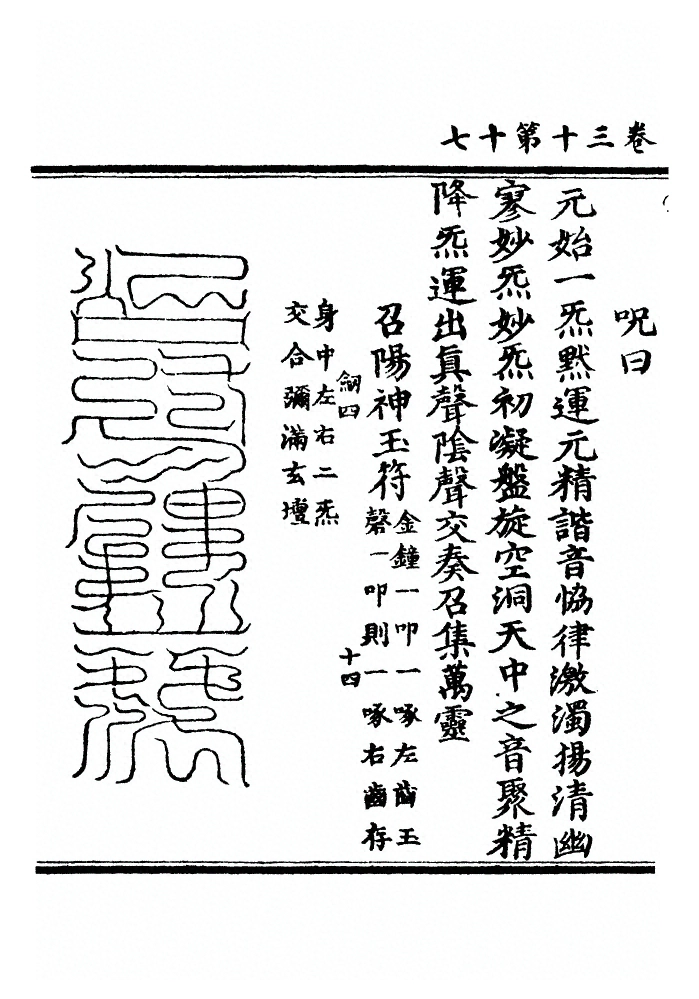 卷三十第十七
呪曰
元始一炁默運元精諧音恊律激濁揚清幽
寥妙炁妙炁初凝盤旋空洞天中之音聚精
降炁運出眞聲陰聲交奏召集萬靈
召陽神玉符
金鐘一叩一啄左齒玉
磬一叩則一啄右齒存
劒四
十四
身中左右二炁
交合彌滿玄壇